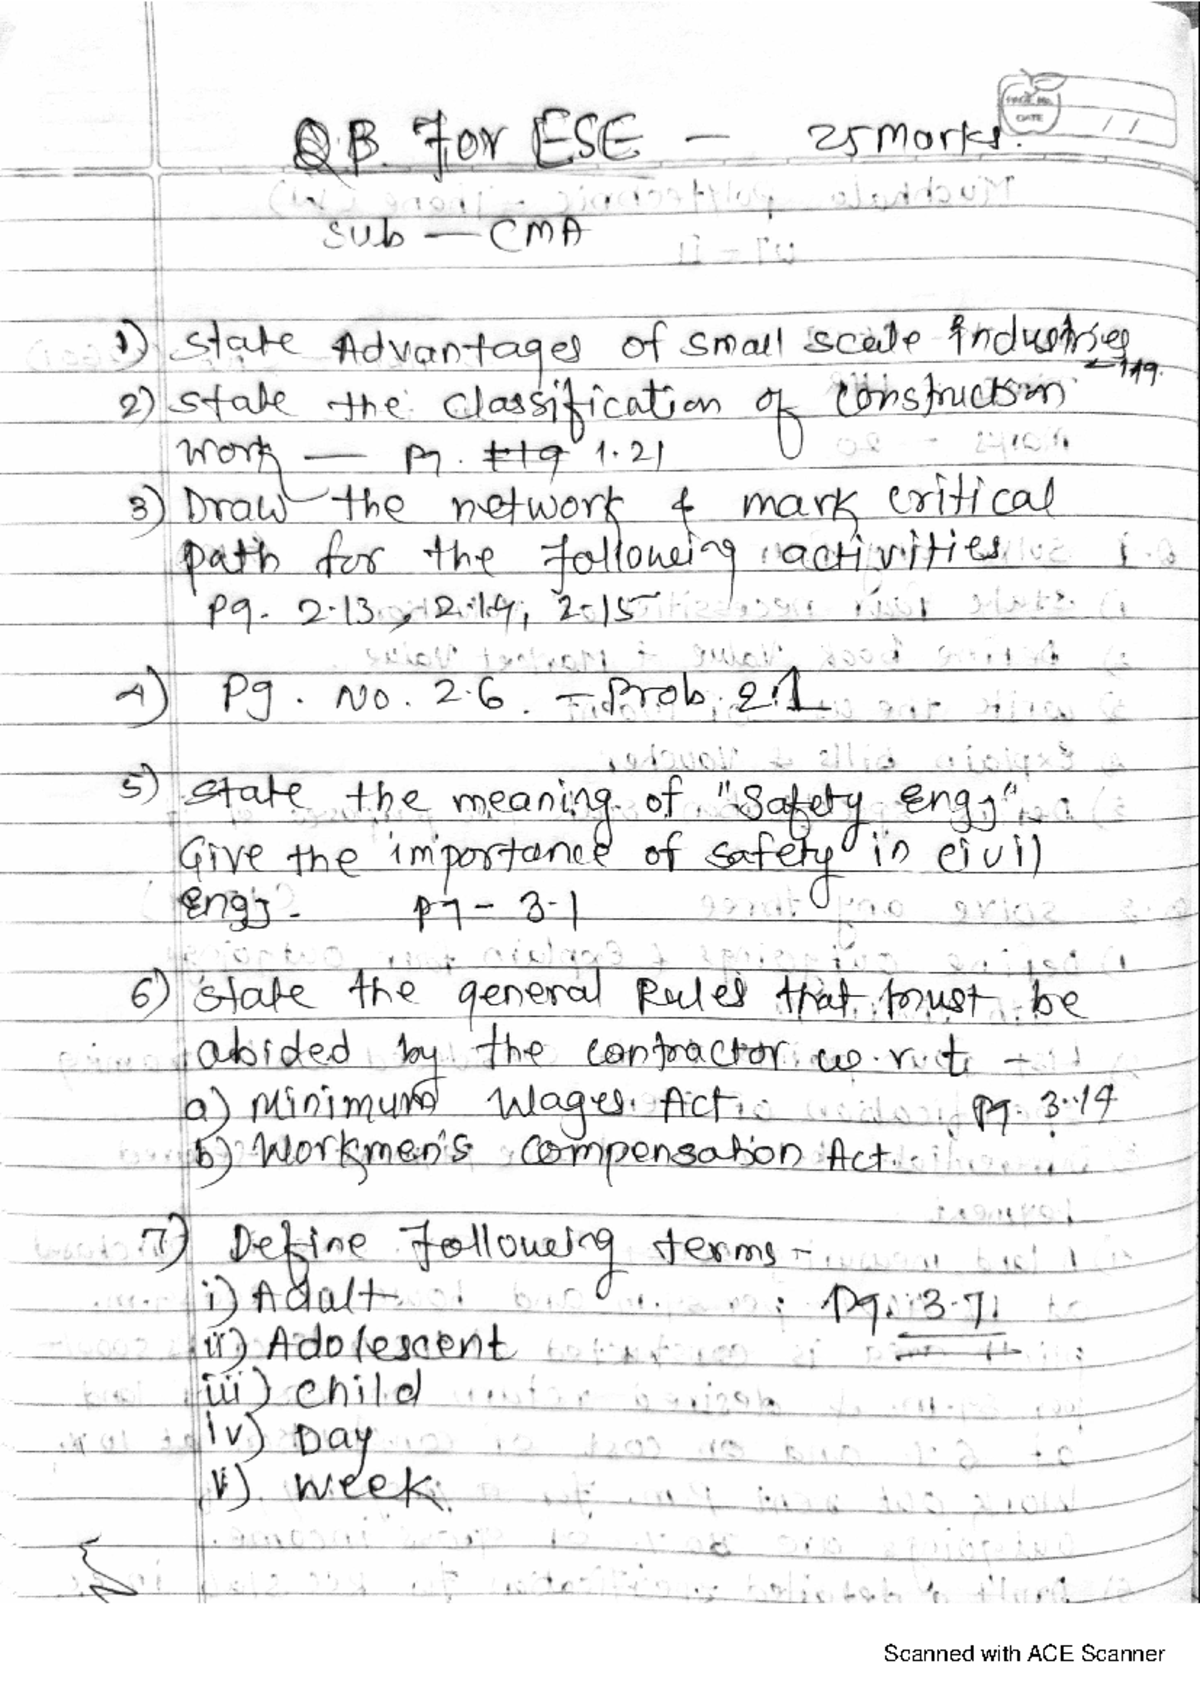 PAGE No.
DATE / /
Q.B. For ESE — 25 Marks.
Sub — CMA
1) State Advantages of small scale industries
2) State the classification of construction
work — Pg. 1.21
3) Draw the network & mark critical
path for the following activities
Pg. 2.13, 2.14, 2.15
4) Pg. No. 2.6. — Prob. 2.1
5) State the meaning of "Safety Engg"
Give the importance of safety in civil
Engg. Pg - 3.1
6) State the general Rules that must be
abided by the contractor w.r.t. -
a) Minimum Wages Act. Pg. 3.14
b) Workmen's Compensation Act.
7) Define following terms -
i) Adalt : Pg. 3.7
ii) Adolescent
iii) child
iv) Day
v) week
Scanned with ACE Scanner